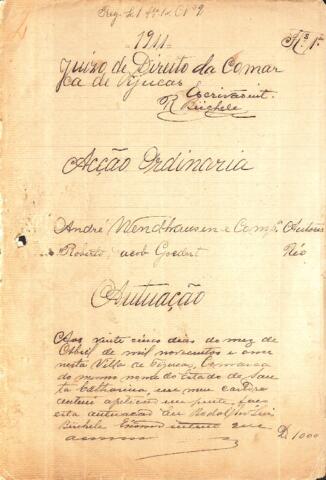 1911
Nº 1
Juizo de Direito da Comar
ca de Tijucas
Escrivão int.
R Büchele
Acção Ordinaria
André Wendhausen e Compª Autores
Roberto Jacob Goedert Réo
Autuação
Aos vinte cinco dias do mez de
Abril de mil novecentos e onze
nesta Villa de Tijucas, Comarca
do mesmo nome do Estado de San
ta Catharina, em meu cartorio
autuei a petição em frente, faço
esta autuação Eu Rodolpho Luis
Büchele Escrivão interino que
assino
R 1000